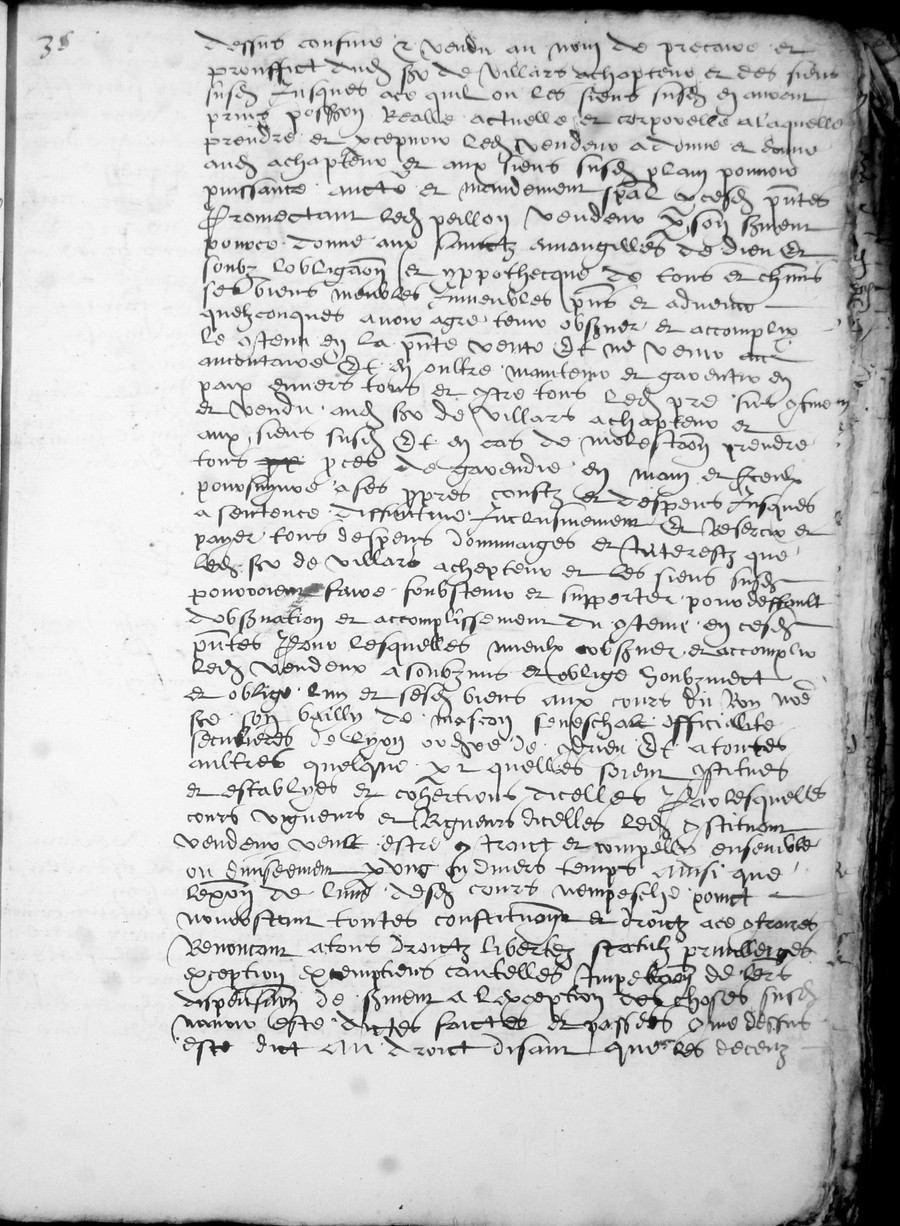 35
dessus confine & vendu au nom de precaire et
prouffict dud sr de Villars achapteur et des siens
susd Jusques ace quil ou les siens susd en auront
prins possion Realle actuelle et corporelle a laquelle
prendre et led vendeur a donne et donne
aud achapteur et aux siens susd plain pouuoir
puissance aucte et mandement spal cesd pntes
Promectant led peillon vendeur p son serment
pource donne aux sainctz euuangilles de dieu Et
soubz lobligaon et yppothecque de tous et chuns
ses biens meubles Immeubles pns et aduenir
quelzconques auoir agre tenir obseruer et accomplir
le contenu en la pnte vente Et ne venir au
contraire Et en oultre maintenir et garentir en
paix enuers tous et contre tous led pre sus confine
et vendu aud sr de Villars achapteur et
aux siens susd Et en cas de molestaon prendre
tous proces de garendie en main et Iceulx
poursuyure a ses ppres constz et despens Jusques
a sentence diffinitiue Inclusiuement Et Resercir et
payer tous despens dommaiges et Interestz que
led sr de Villars achepteur et les siens susd
pourroient faire soubstenir et supporter pour deffault
dobseruation et accomplissement du contenu en cesd
pntes Pour lesquelles mieulx obseruer et accomplir
led vendeur a soubzmis et oblige soubzmect
et oblige luy et sesd biens aux cours du Roy nred
sre son bailly de mascon seneschal officialite
seculieres de lyon ordre de Et a toutes
aultres quelque p quelles soient constitues
et establyes et cohertions dicelles Par lesquelles
cours vigueurs et Rigueurs dicelles led constituant
vendeur veult estre contrainct et compelle ensemble
ou diuisement p ung diuers temps Ainsi que
lexon de lune desd cours nempesche poinct
nonobstant toutes constitutions et droictz ace contraires
Renoncant a tous droictz libertez statutz priuilleiges
exception exemptions cautelles Impetraon de lres
dispensaon de serment a lexception des choses susd
nauoir este dictes faictes et passees come dessus
este dict Au droict disant que les deceuz